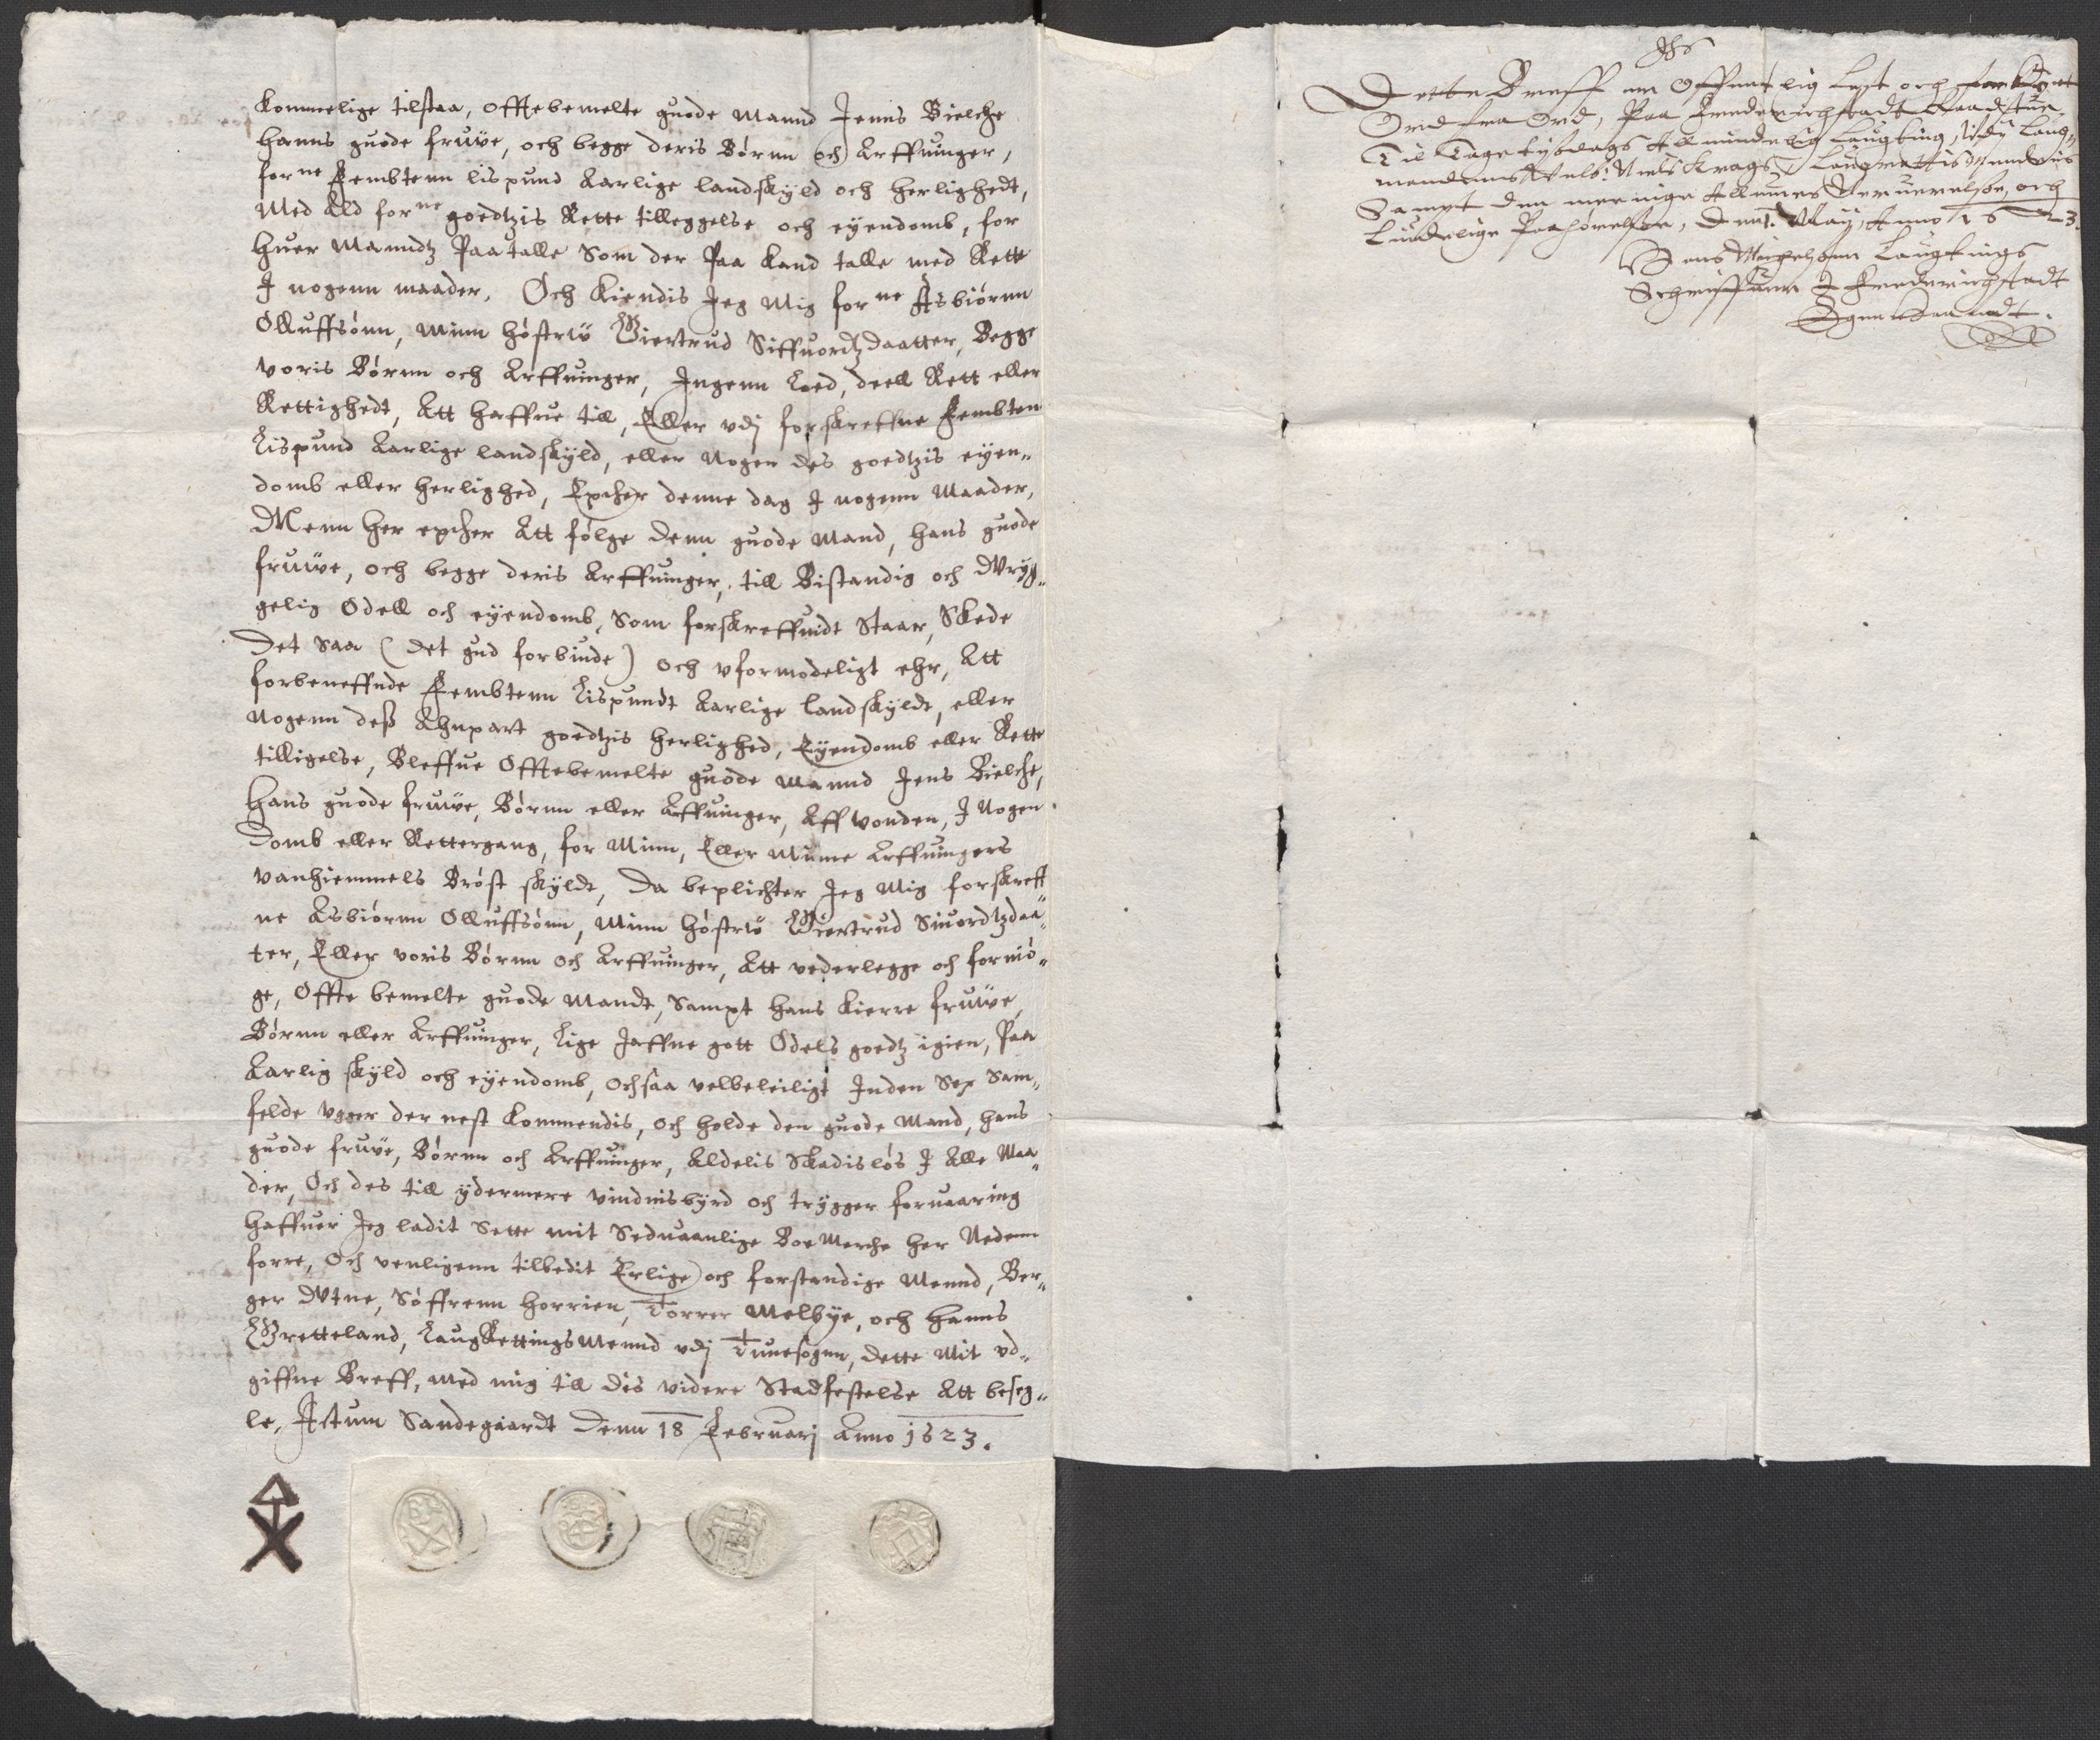 kommelige tilstaa, offtebemelte guode Mannd Jenns Bielche
hanns guode fruwe, och begge deris Børnn och Arffuinger,
for ne Fembtenn lispund Aarlige landskyld och herlighedt,
Med Ald for ne goedtzis Rette tilleggelse och eyendomb, for
huer Manndtz Paatalle Som der Paa kand talle med Rette
J nogenn maader. Och kiendis Jeg Mig for ne Asbiørnn
Olluffsønn, Minn høstrw Giertrud Siffuordtzdaatter, Begge
voris Børnn och Arffuinger, Jngenn Loed, deell Rett eller
Rettighedt, Att haffue till, Eller vdj forskreffne Fembten
Lispund Aarlige landskyld, eller Nogen des goedtzis eyen„
domb eller herlighed, Epther denne dag J nogenn Maader,
Menn her epther Att følge denn guode Mand, hans guode
fruwe, och begge deris Arffuinger, till Bistandig och Wryg„
gelig Odell och eyendomb, Som forskreffuidt Staar, Skede
Det saa (det gud forbiude) och vformodeligt ehr, Att
forbeneffnde Fembtenn Lispundt Aarlige landskyldt, eller
Nogenn dess Ahnpart goedtzis herlighed, Eyendomb eller Rette
tilligelse, Bleffue Offtebemelte guode Mannd Jens Bielche,
Hans guode fruwe, Børnn eller Arffuinger, Aff vonden, J Nogen
Domb eller Rettergang, for Minn, Eller Minne Arffuingers
vanhiemmels Brøst skyldt, Da beplichter Jeg Mig forskreff„
ne Asbiørnn Olluffsønn, Minn høstrw Giertrud Siuordtzdaa„
ter, Eller voris Børnn och Arffuinger, Att vederlegge och fornø„
ge, Offte bemelte guode Mandt, Sampt hans kierre fruwe,
Børnn eller Arffuinger, Lige Jaffne gott Odels goedtz igien, Paa
Aarlig skyld och eyendomb, ochsaa velbeleiligt Jnden Sex Sam„
felde vger der nest kommendis, och holde den guode Mand, hans
guode fruwe, Børnn och Arffuinger, Aldelis Skadisløs J Alle Maa„
der, Och des till ydermere vindnisbyrd och trygger foruaaring
haffuer Jeg ladit Sette mit Seduaanlige Boe Merche her Nedenn
forre, Och venligenn tilbedit Erlige och forstandige Mennd, Ber„
ger Wtne, Søffrenn Horrien, Torrer Melbye, och Hanns
Gretteland, LaugRettings Mennd vdj Tunesogenn, dette Mit vd„
giffne Breff, med mig till des videre Stadfestelse Att beseg„
le, Actum Sandegaardt Denn 18 Februarj Anno 1623.
Jhs
Dette Breff er Offentlig Lest och forkyndt
Ord fra Ord, Paa Frederichstadt Raadstue
Til Tage tysdags Almindelig Laugting, vdj Laug„
mandens Welb: Niels Krags, Laugrettis Mendens
Sampt den menige Almues Neruerelse, och
Liudelige Paahørelse, Den 1. May, Anno 1623.
Laugtings
Schriffuer J Frederichstadt
Egen Haandt.